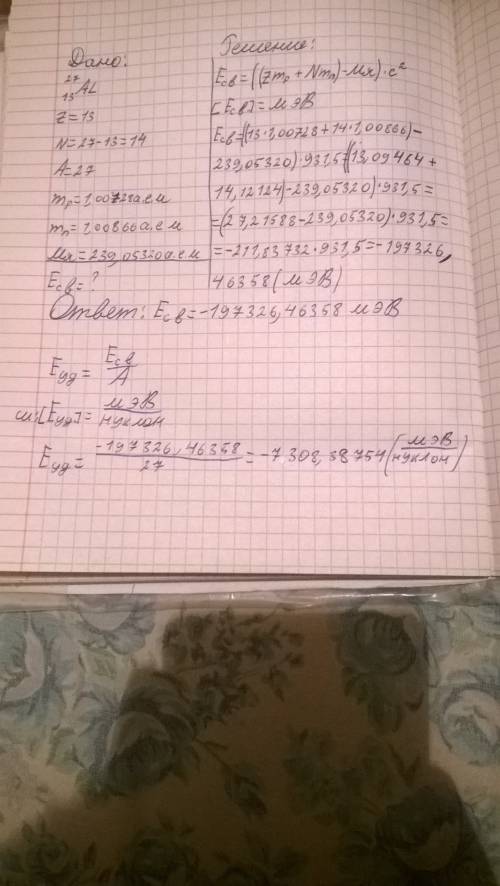 Дано:
²⁷₁₃AL
Z=13
N=27-13=14
A=27
mp=1,00728а.е.м
mn=1,00866а.е.м
Mя=239,05320а.е.м
Eсв=?
Решение:
Eсв=((Zmp+Nmn)-Mя)·c²
[Eсв]=МЭВ
Eсв=((13·1,00728+14·1,00866)-
239,05320)·931,5=((13,09464+
14,12124)-239,05320)·931,5=
=(27,21588-239,05320)·931,5=
=-211,83732·931,5=-197326,
46358(МЭВ)
Ответ: Eсв=-197326,46358 МЭВ
Eуд=Eсв/A
си:[Eуд]=МЭВ/нуклон
Eуд=-197326,46358/27=-7308,38754(МЭВ/нуклон)